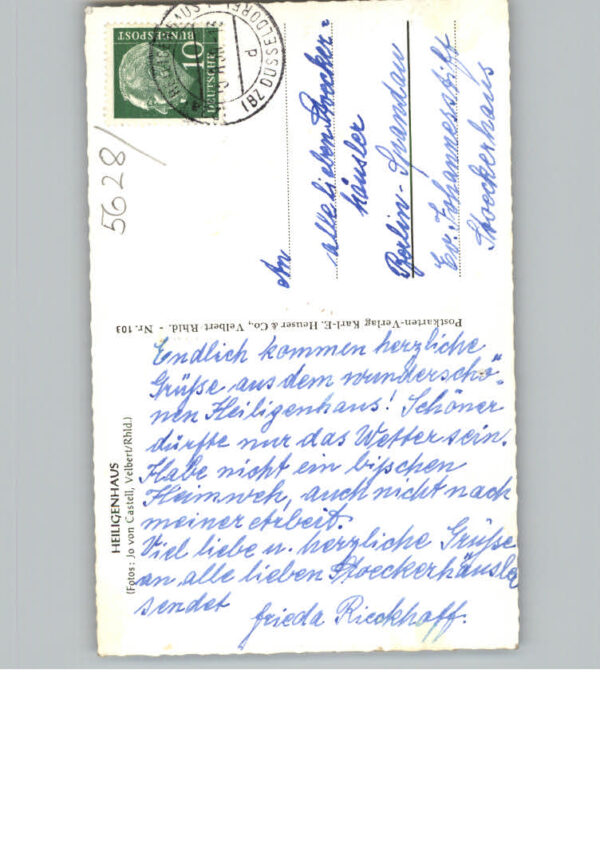 HEILIGENHAUS
(Fotos: Jo von Castell, Velbert/Rhld.)
Endlich kommen herzliche
Grüße aus dem wunderschö-
nen Heiligenhaus! Schöner
dürfte nur das Wetter sein.
Habe nicht ein bißchen
Heimweh, auch nicht nach
meiner Arbeit.
Viel liebe u. herzliche Grüße
an alle lieben Stoeckerhäusler
sendet
Frieda Rieckhoff.
Postkarten-Verlag Karl-E. Heuser & Co., Velbert-Rhld. - Nr. 103
An
alle lieben Stoecker-
häusler
Berlin-Spandau
Ev. Johannesstift
Stoeckerhaus
5628/
DEUTSCHE
BUNDESPOST
10
DÜSSELDORF
(BZ